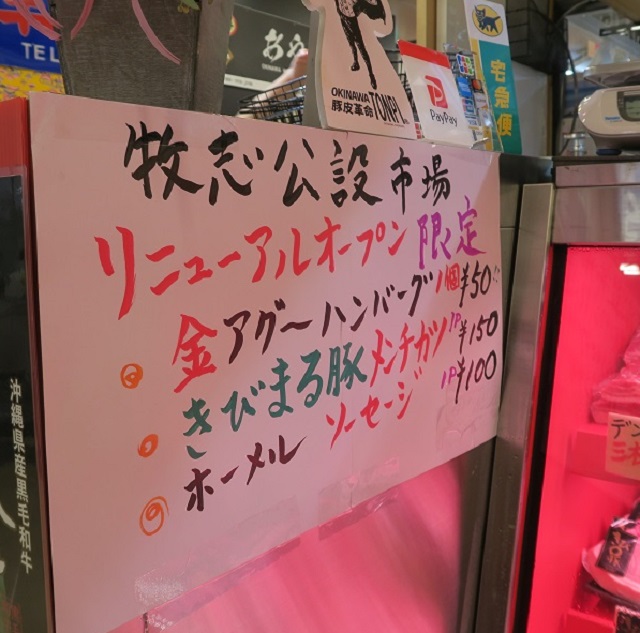 TEL
OKINAWA
豚皮革命TONPI
PayPay
JCB
宅急便
牧志公設市場
リニューアルオープン限定
金アグーハンバーグ1個¥50
きびまる豚メンチカツ1P¥150
ホーメルソーセージ1P¥100
沖縄県産黒毛和牛
デン
三枚